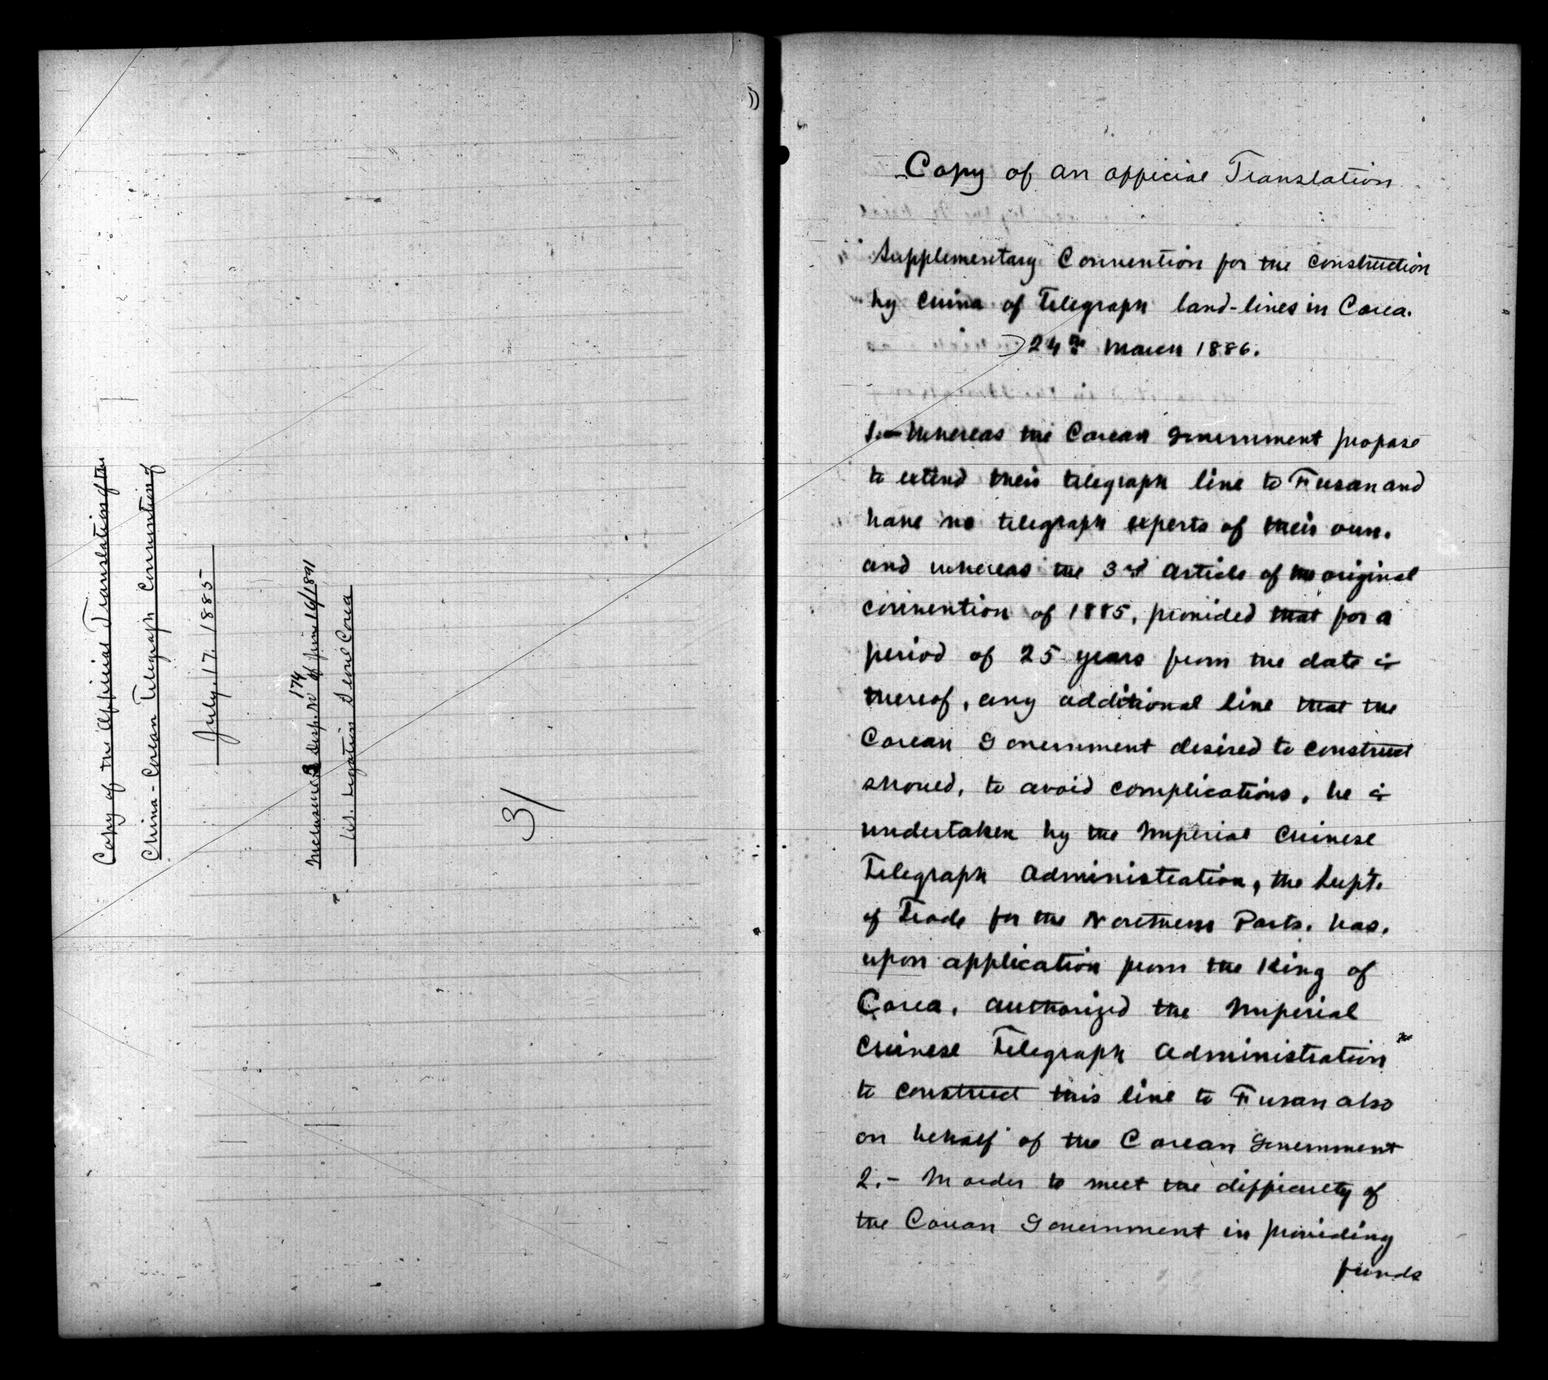 Copy of the Official Translation of the
China-Corean Telegraph Convention of
July. 17. 1885
Inclosure 3 desp. No 174 of June 16/1891
U.S. Legation Seoul Corea
31
Copy of an official Translation
Supplementary Convention for the construction
by China of Telegraph land-lines in Corea.
24th March 1886.
1.- Whereas the Corean Government propose
to extend their telegraph line to Fusan and
have no telegraph experts of their own.
and whereas the 3rd article of the original
convention of 1885, provided that for a
period of 25 years from the date
thereof, any additional line that the
Corean Government desired to construct
should, to avoid complications, be
undertaken by the Imperial Chinese
Telegraph Administration, the Supt.
of Trade for the Northern Ports. has.
upon application from the King of
Corea, authorized the Imperial
Chinese Telegraph Administration
to construct this line to Fusan also
on behalf of the Corean Government
2.- In order to meet the difficulty of
the Corean Government in providing
funds